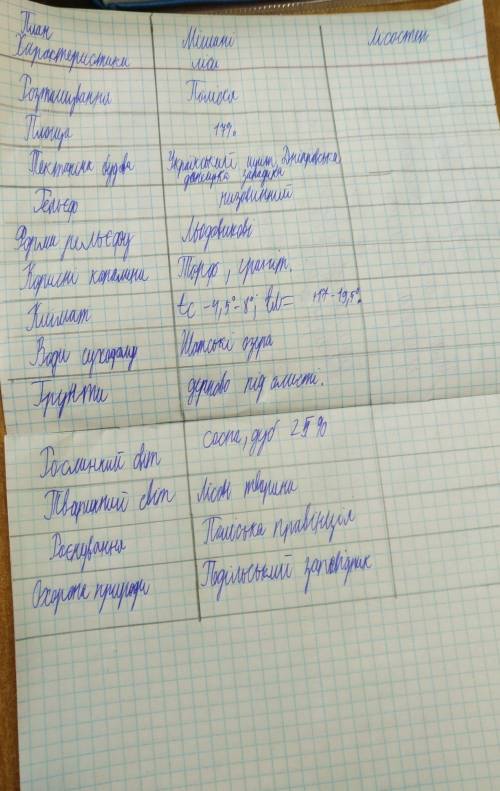 План Характеристики Мішані ліси Лісостеп
Розташування Полісся
Площа 17%
Тектонічна будова Український щит, Дніпровська
донецька западина
Рельєф низовинний
Форма рельєфу Льодовикові
Корисні копалини Торф, граніт.
Клімат tc -4,5°-8°; tл= +17-19,5°.
Води суходолу Шатські озера
Ґрунти дерново підзолисті.
Рослинний світ сосна, дуб 25%
Тваринний світ Лісові тварини
Раєнування Поліська правінція
Охорона природи Подільський заповідник